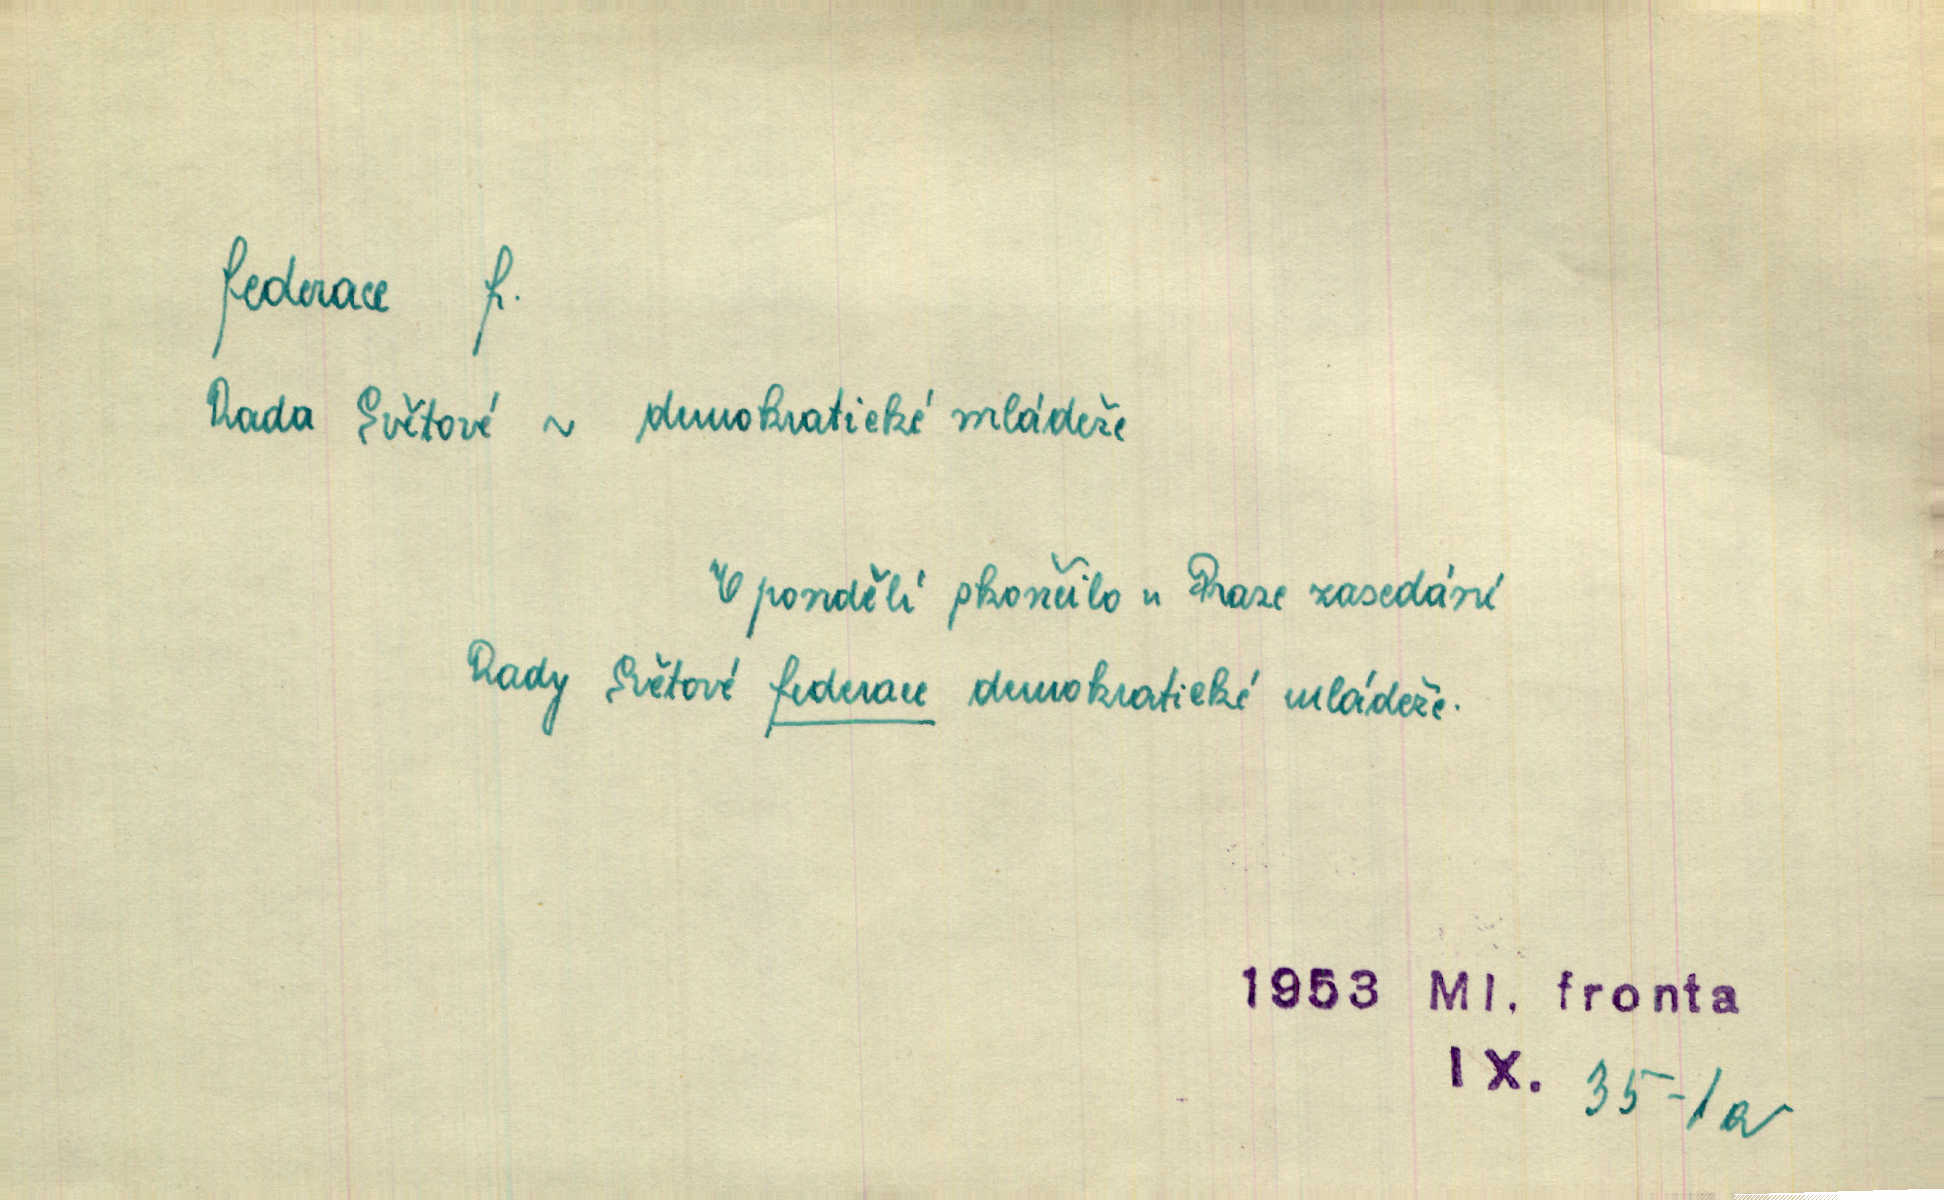 federace f.
Rada Světové ~ demokratické mládeže
V pondělí skončilo v Praze zasedání
Rady Světové federace demokratické mládeže.
1953 Ml. fronta
IX. 35-1a